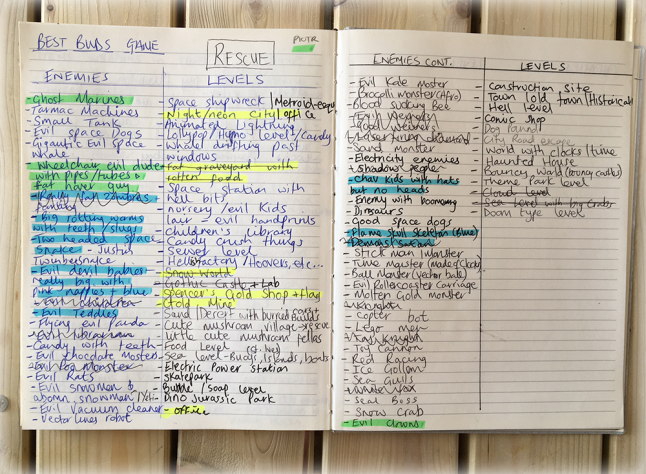 BEST BUDS GAME
RESCUE
ENEMIES
- Ghost Marines
- Tarmac Machines
- Small Tank
- Evil Space Dogs
- Gigantic Evil space
whale
- Wheelchair evil dude
with pipes/tubes a
fat hover guy
- Big rotting worms
with teeth/slugs
- Two headed space
Snake - Justin
- Evil devil babies
really big with
pink nappies + blue
- Evil Teddies
- Flying evil panda
- Candy with teeth
- Evil Chocolate Monster
- Evil Rats
- Evil snowmen &
abom. snowman/Yeti
- Evil Vacuum cleaner
- Vector lines robot
LEVELS
- Space shipwreck/Metroid-esque
- Night/neon City/office
- Animated Lightning
- Lollypop/Hyme Level/candy
- Whale drifting past
windows
- Fat graveyard with
rotten food
- Space station with
hell bits
- nursery/evil Kids
lair - evil handprints
- Children's Library
- Candy crush things
- Sewer level
- Snow World
- Gothic Castle + Lab
- Spencer's Gold Shop + flag
- Gold Mine
- Sand Desert with burned
- Cute mushroom village - rescue
little cute mushroom fellas
- Food Level
- Sea Level - Buds, Islands, boats
- Electric Power Station
- skatepark
- Bubble/soap level
- Dino Jurassic Park
- office
ENEMIES CONT.
- Evil Kale Moster
- Brocolli monster (Afro)
- Blood sucking Bee
- Evil Weiners
- Good Weiners
- Sand monster
- Electricity enemies
- Shadows people
- Chav Kids with hats
but no heads
- Enemy with boomerang
- Dinosaurs
- Good space dogs
- Flame Skull Skeleton (Blue)
- Stick man/Monster
- Time Monster (made of clocks)
- Ball Monster (Vector balls)
- Evil Rollercoaster Carriage
- Molten Gold monster
- copter bot
- Lego men
- Toy Cannon
- Rod Racing
- Ice Gollem
- Sea Gulls
- Seal Boss
- Snow Crab
- Evil Clowns
LEVELS
- Construction Site
- Town/old town/Historical
- Hell Level
- Comic Shop
- Dog pound
- City Road escape
- World with clocks/time
- Haunted House
- Bouncy World (bouncy castles)
- Theme Park level
- Cloud Level
- Sea Level with big Crabs
- Doom type level